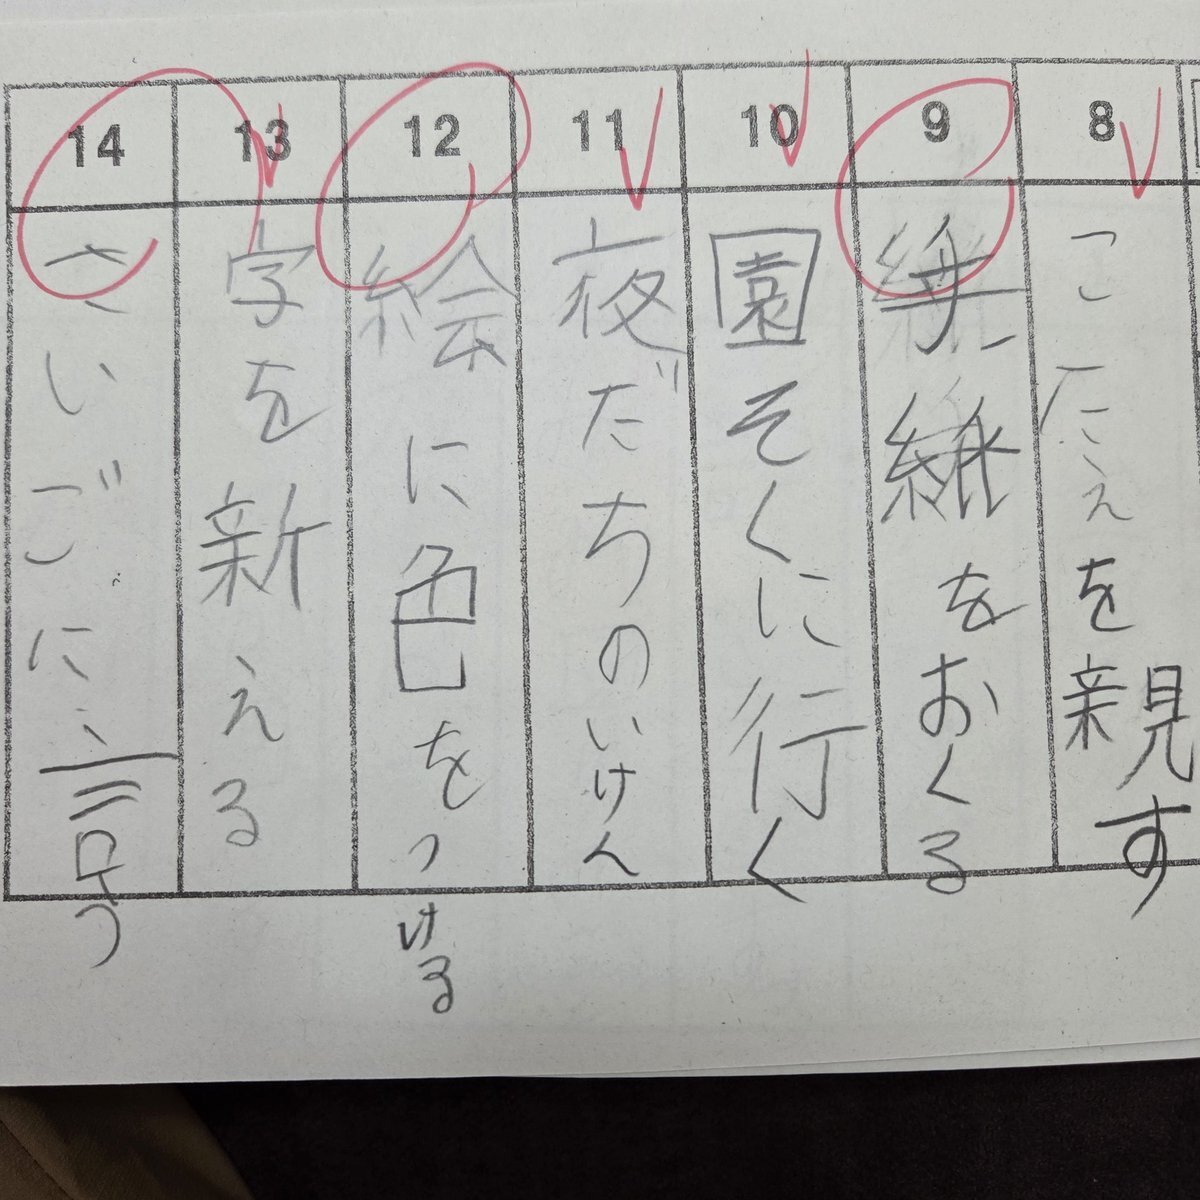 8
こたえを親す
9
をおくる
10
園そくに行く
11
夜だちのいけん
12
絵に色をつける
13
字を新える
14
さいごに言う